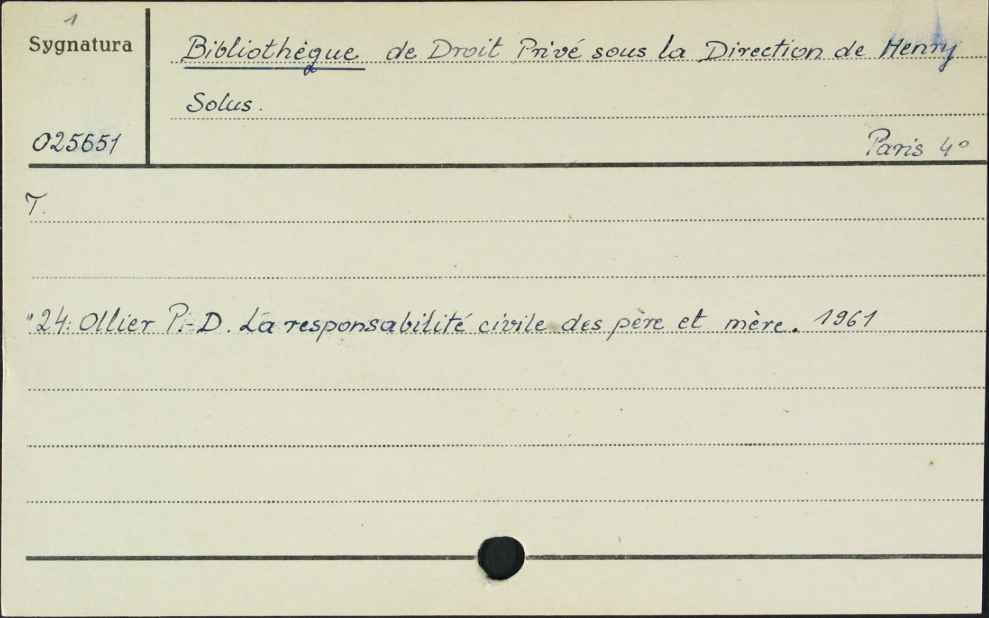 1
Sygnatura
Bibliothèque de Droit Privé sous la Direction de Henry
Solus.
025651
Paris 4°
T.
"24: Ollier P.-D. La responsabilité civile des père et mère. 1961